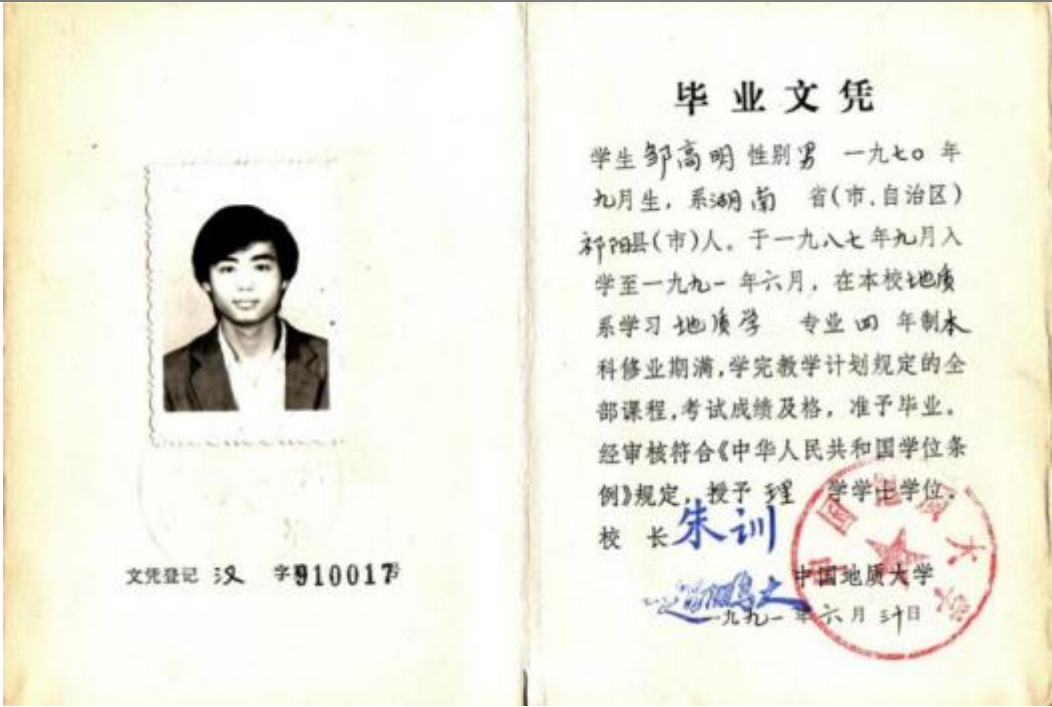 文凭登记 汉 字第910017号
毕业文凭
学生邹高明性别男 一九七〇年
九月生，系湖南 省(市、自治区)
祁阳县(市)人。于一九八七年九月入
学至一九九一年六月，在本校地质
系学习地质学 专业四年制本
科修业期满，学完教学计划规定的全
部课程，考试成绩及格，准予毕业。
经审核符合《中华人民共和国学位条
例》规定，授予理 学学士学位。
校 长 朱训
赵鹏大
中国地质大学
一九九一年六月三十日
中国地质大学